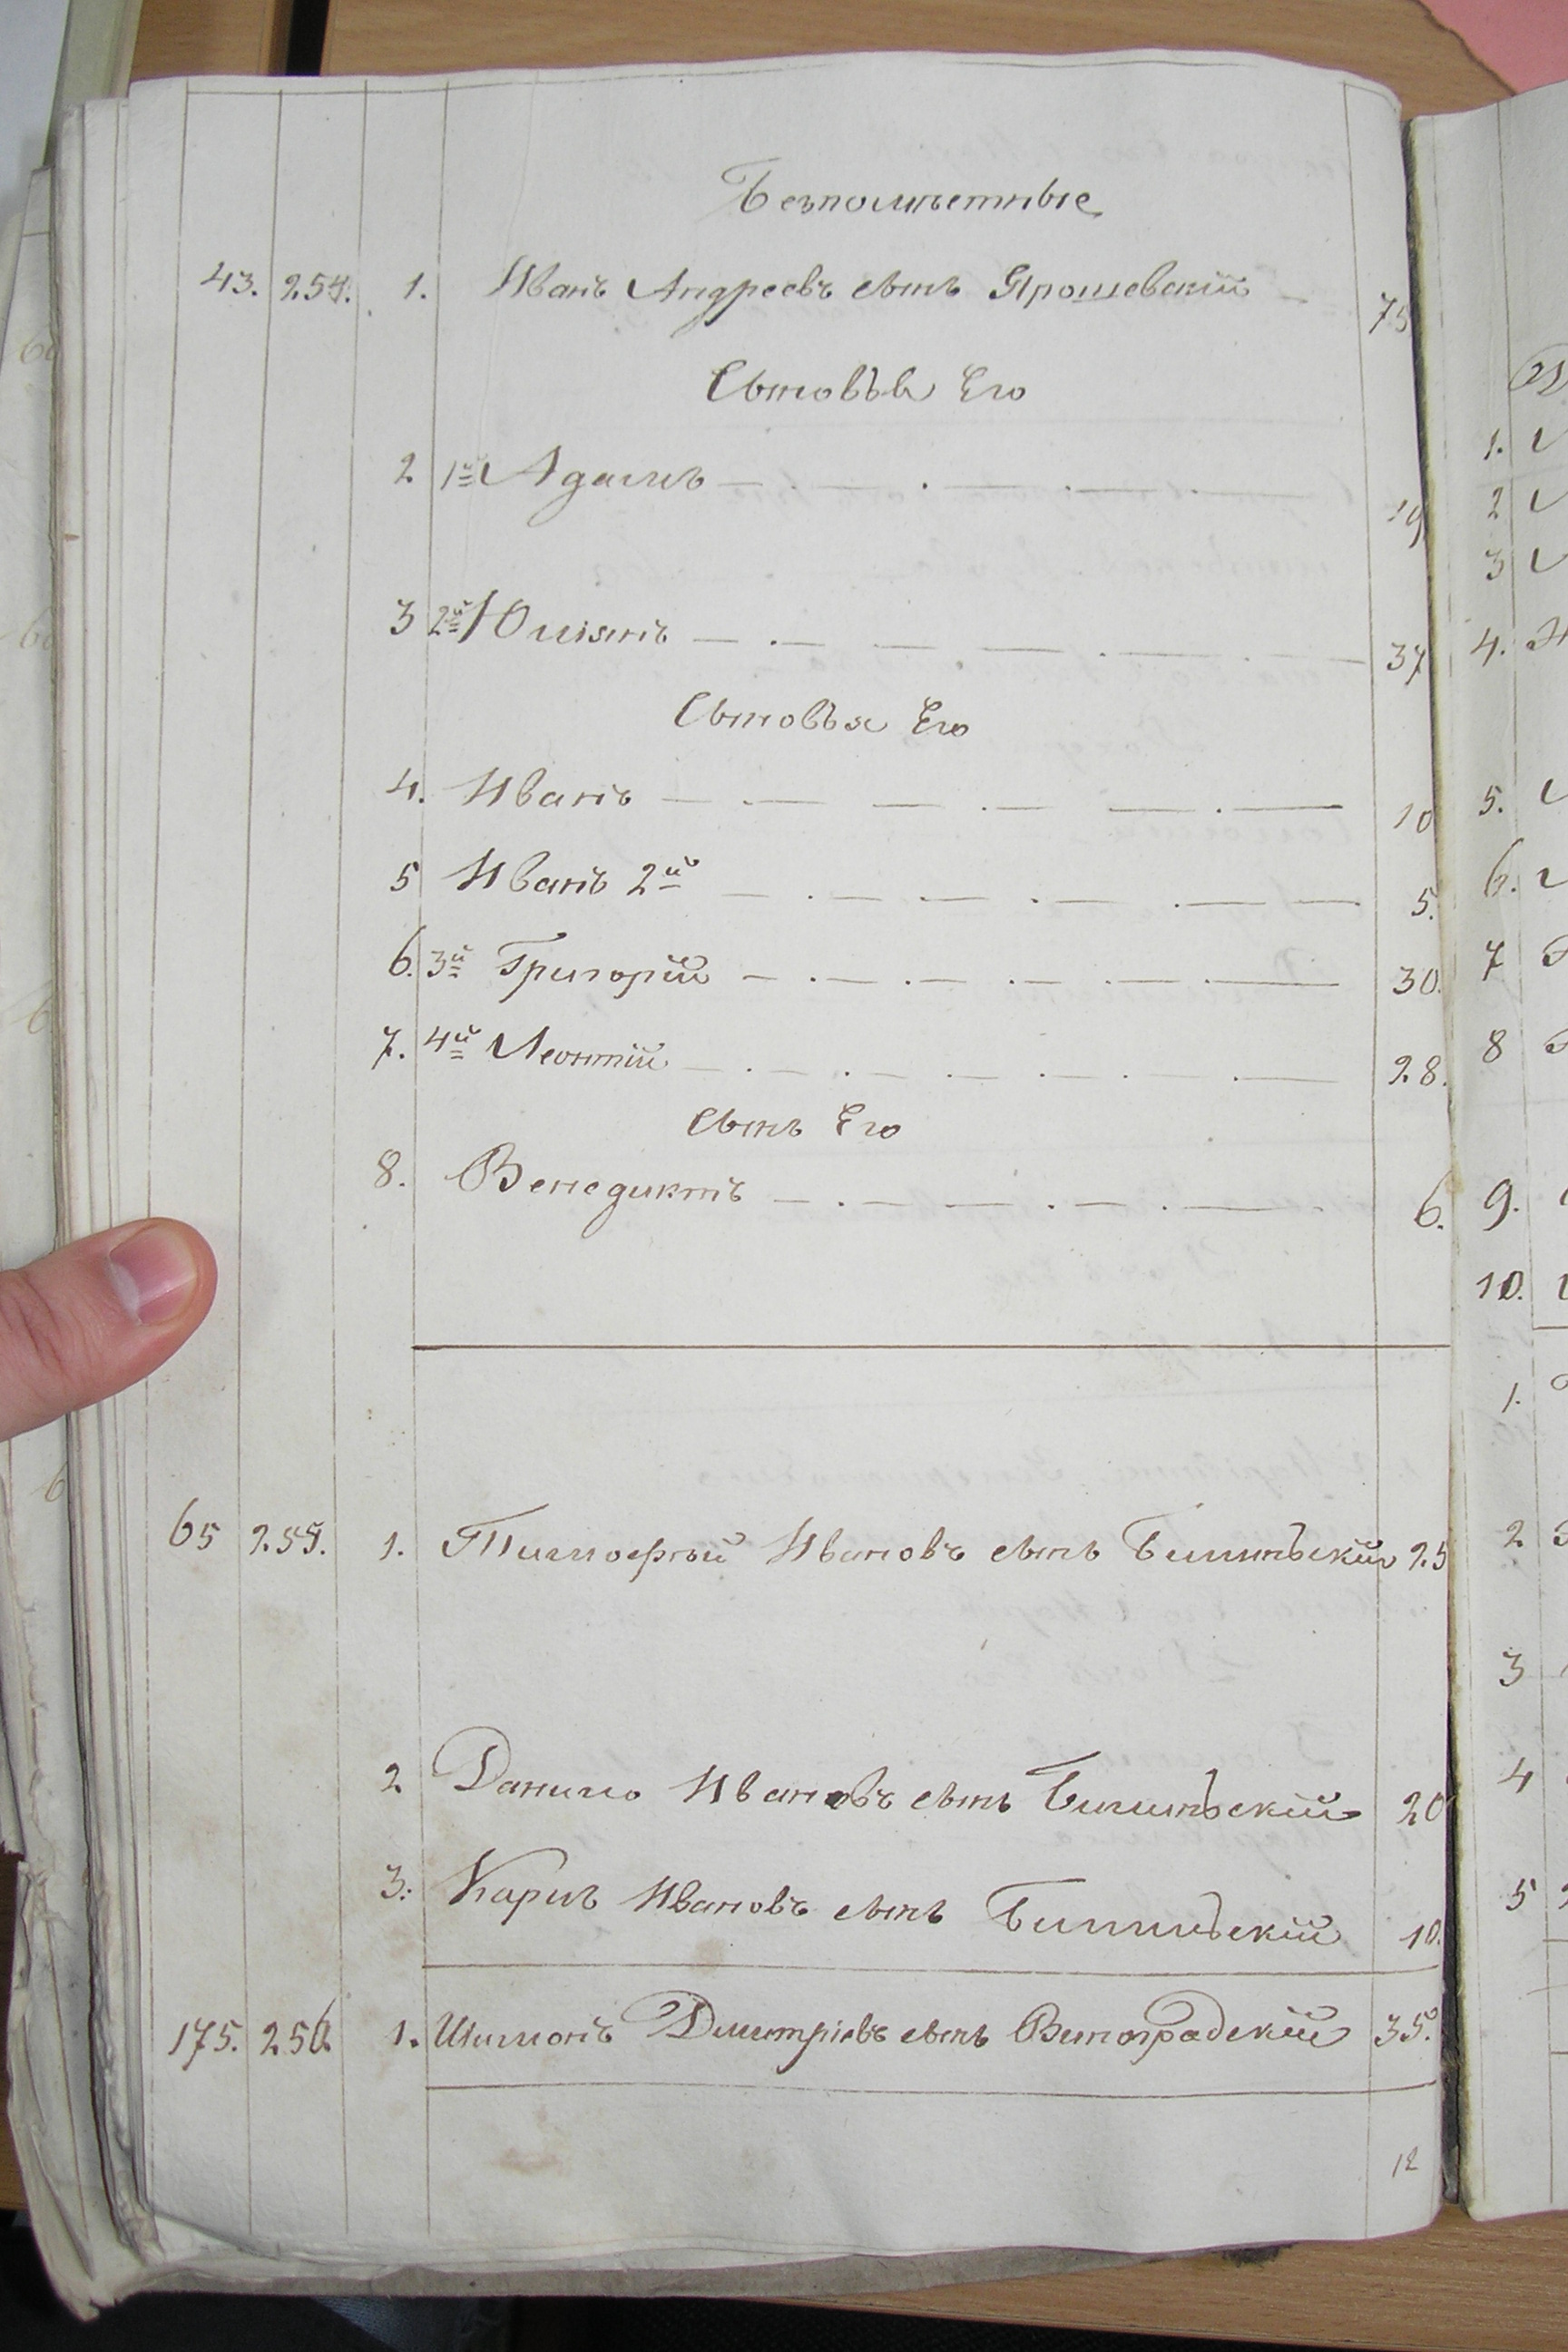 Безпоместные
43. 254. 1. Иванъ Андреевъ сынъ Ярошевскій 75
Сыновья Его
2 1й Адамъ 19
3 2й Юліянъ 37
Сыновья Его
4. Иванъ 10
5 Иванъ 2й 5.
6. 3й Григорій 30.
7. 4й Леонтій 28.
Сынъ Его
8. Венедиктъ 6.
65 255. 1. Тимофѣй Ивановъ сынъ 25
2 Данило Ивановъ сынъ 20
3. Карпъ Ивановъ сынъ 10.
175. 256 1. Шимонъ Дмитріевъ сынъ Виноградскій 35.
12
1.
2
3
4.
5.
6.
7
8
9.
10.
1.
2
3
4
5